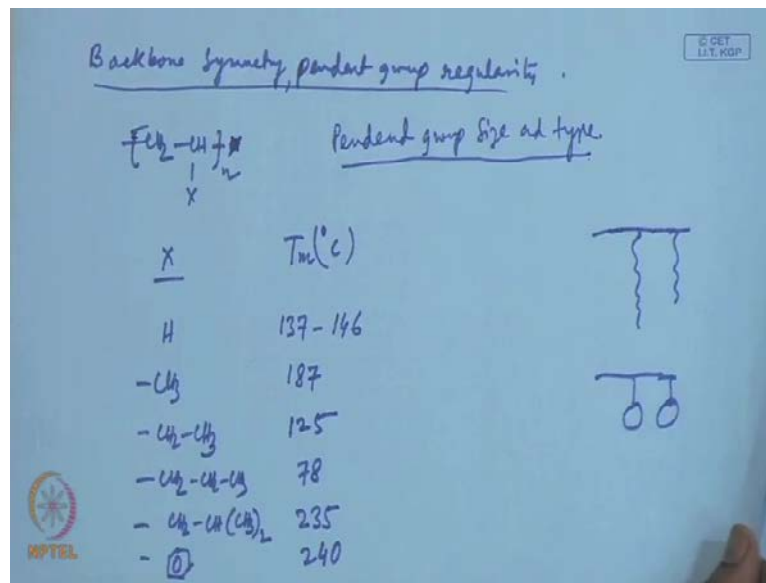 Backbone Symmetry, pendent group regularity.
© CET
I.I.T. KGP
[CH2-CH]n
X
Pendend group Size ad type.
X Tm(°C)
H 137-146
-CH3 187
-CH2-CH3 125
-CH2-CH2-CH3 78
- CH2-CH(CH3)2 235
- 240
NPTEL